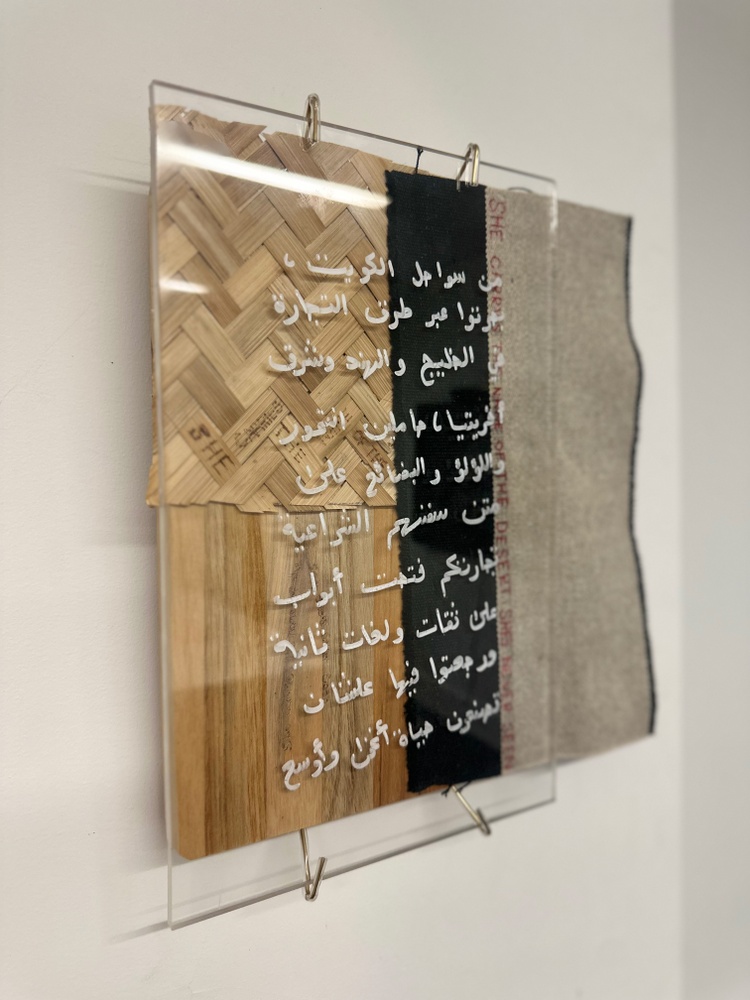 من سواحل الكويت،
عبر طرق التجارة
الخليج والهند وشرق
أفريقيا، حاملين التمور
واللؤلؤ والبضائع على
متن سفنهم الشراعية
تجارتكم فتحت أبواب
على ثقات ولغات ثانية
ورجعتوا فيها علشان
تصنعون حياة أغنى وأوسع
SHE
SHE CARRIES OF THE DESERT SHE